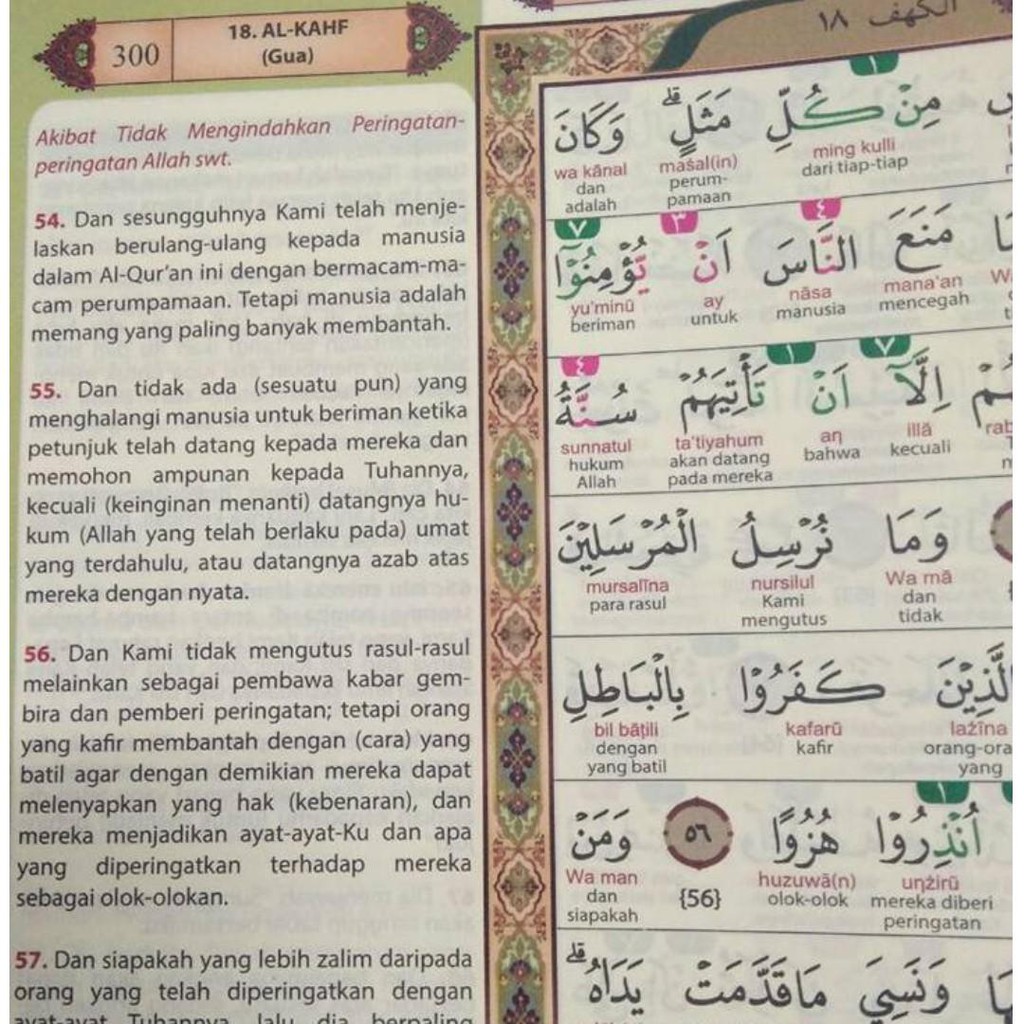 300
18. AL-KAHF
(Gua)
Akibat Tidak Mengindahkan Peringatan-
peringatan Allah swt.
54. Dan sesungguhnya Kami telah menje-
laskan berulang-ulang kepada manusia
dalam Al-Qur'an ini dengan bermacam-ma-
cam perumpamaan. Tetapi manusia adalah
memang yang paling banyak membantah.
55. Dan tidak ada (sesuatu pun) yang
menghalangi manusia untuk beriman ketika
petunjuk telah datang kepada mereka dan
memohon ampunan kepada Tuhannya,
kecuali (keinginan menanti) datangnya hu-
kum (Allah yang telah berlaku pada) umat
yang terdahulu, atau datangnya azab atas
mereka dengan nyata.
56. Dan Kami tidak mengutus rasul-rasul
melainkan sebagai pembawa kabar gem-
bira dan pemberi peringatan; tetapi orang
yang kafir membantah dengan (cara) yang
batil agar dengan demikian mereka dapat
melenyapkan yang hak (kebenaran), dan
mereka menjadikan ayat-ayat-Ku dan apa
yang diperingatkan terhadap mereka
sebagai olok-olokan.
57. Dan siapakah yang lebih zalim daripada
orang yang telah diperingatkan dengan
ayat-ayat Tuhannya, lalu dia berpaling
الكهف ١٨
١
مِنْ كُلِّ مَثَلٍۗ وَكَانَ
wa kānal maṡal(in) ming kulli
dan perum- dari tiap-tiap
adalah pamaan
٤ ٣ ٧
مَنَعَ النَّاسَ اَنْ يُّؤْمِنُوْٓا
yu'minū ay nāsa mana'an
beriman untuk manusia mencegah
٧ ١ ٤
اِلَّآ اَنْ تَأْتِيَهُمْ سُنَّةُ
sunnatul ta'tiyahum aņ illā
hukum akan datang bahwa kecuali
Allah pada mereka
وَمَا نُرْسِلُ الْمُرْسَلِيْنَ
mursalīna nursilul Wa mā
para rasul Kami dan
mengutus tidak
الَّذِيْنَ كَفَرُوْا بِالْبَاطِلِ
bil bāṭili kafarū lażīna
dengan kafir orang-ora
yang batil yang
١
اُنْذِرُوْا هُزُوًا ٥٦ وَمَنْ
Wa man {56} huzuwā(n) uņżirū
dan olok-olok mereka diberi
siapakah peringatan
وَنَسِيَ مَاقَدَّمَتْ يَدَاهُۗ